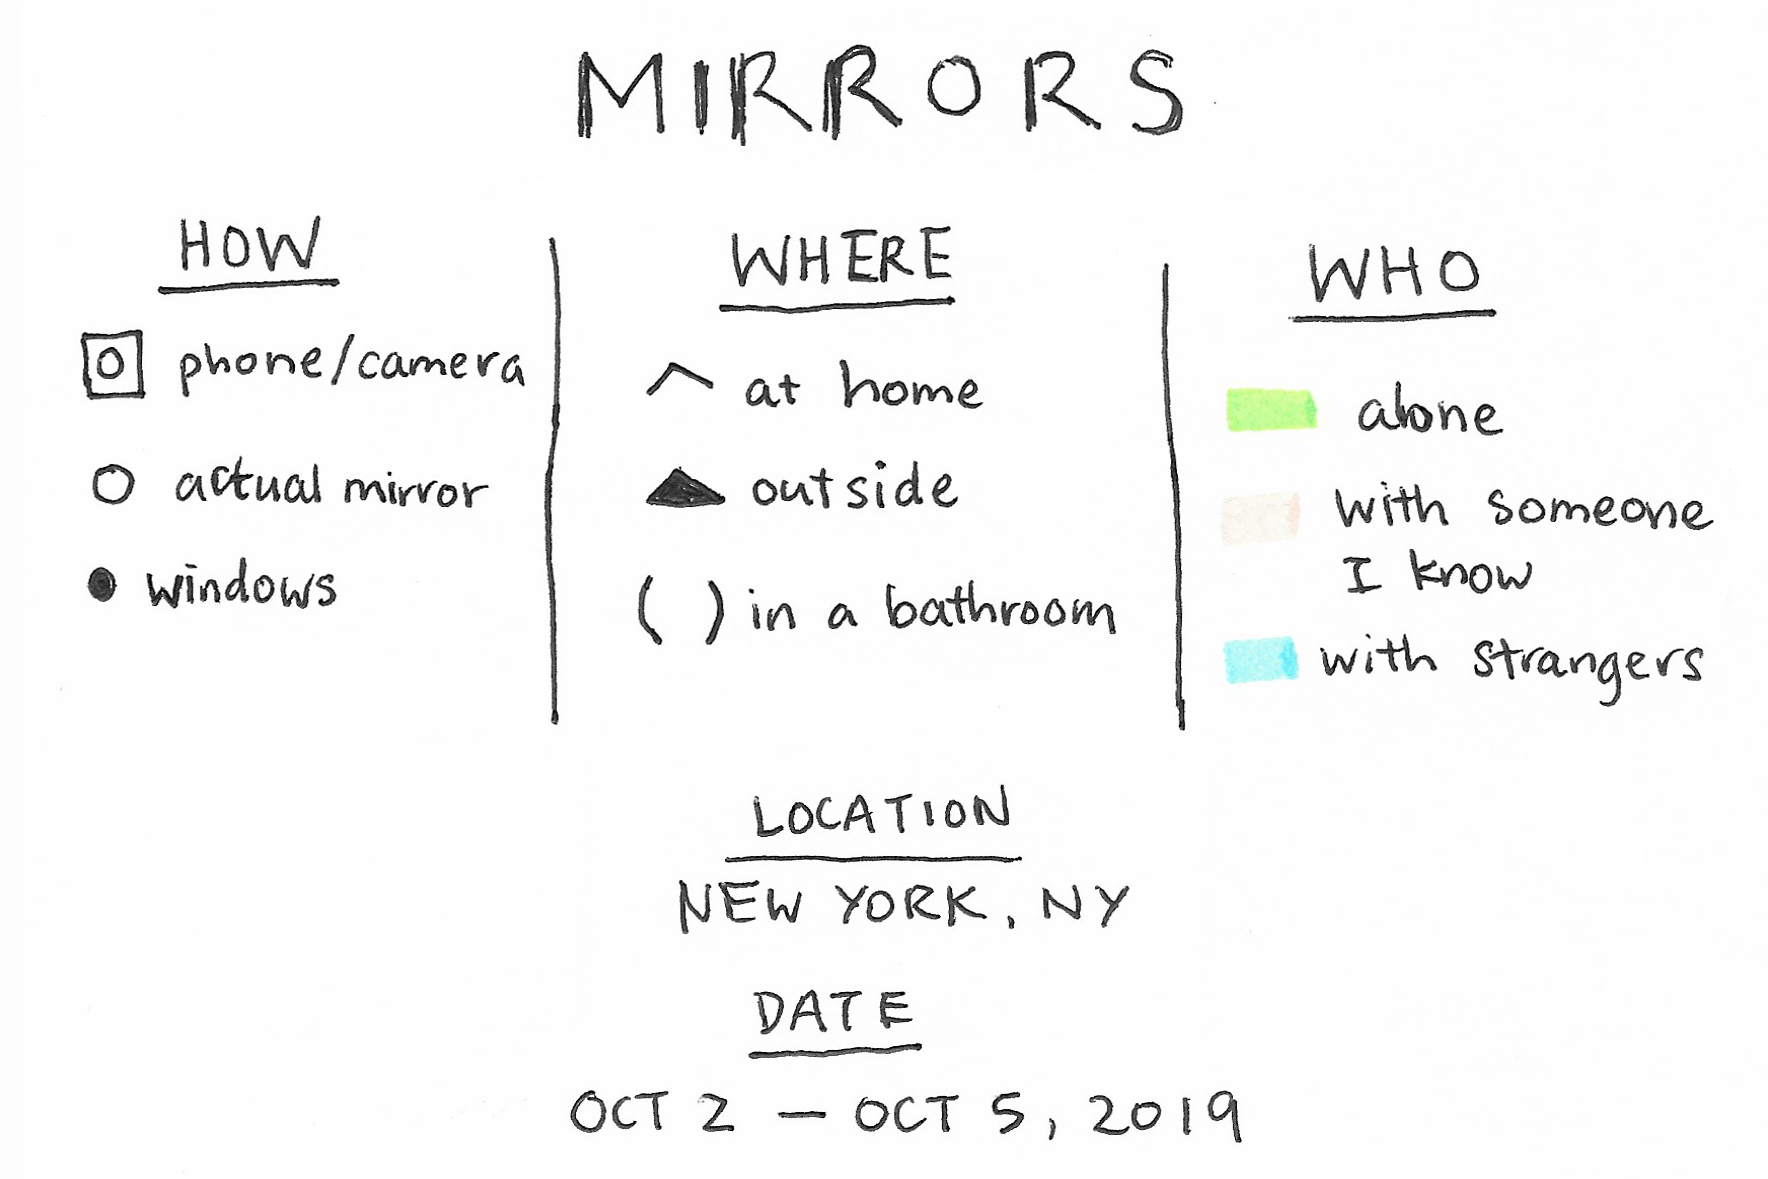 MIRRORS
HOW
phone/camera
actual mirror
windows
WHERE
at home
outside
( ) in a bathroom
WHO
alone
with someone
I know
with strangers
LOCATION
NEW YORK, NY
DATE
OCT 2 — OCT 5, 2019